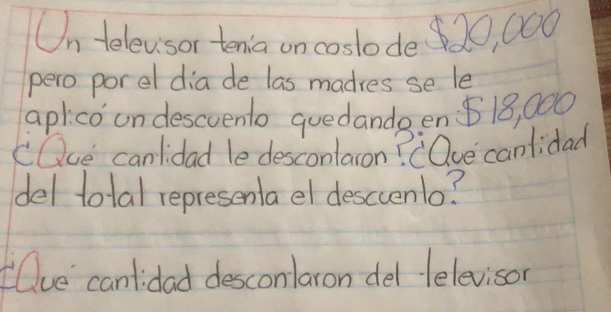 Un televisor tenía un costo de $20,000
pero por el día de las madres se le
aplicó un descuento quedando en $18,000
¿Qué cantidad le descontaron? ¿Qué cantidad
del total representa el descuento?
¿Qué cantidad descontaron del televisor